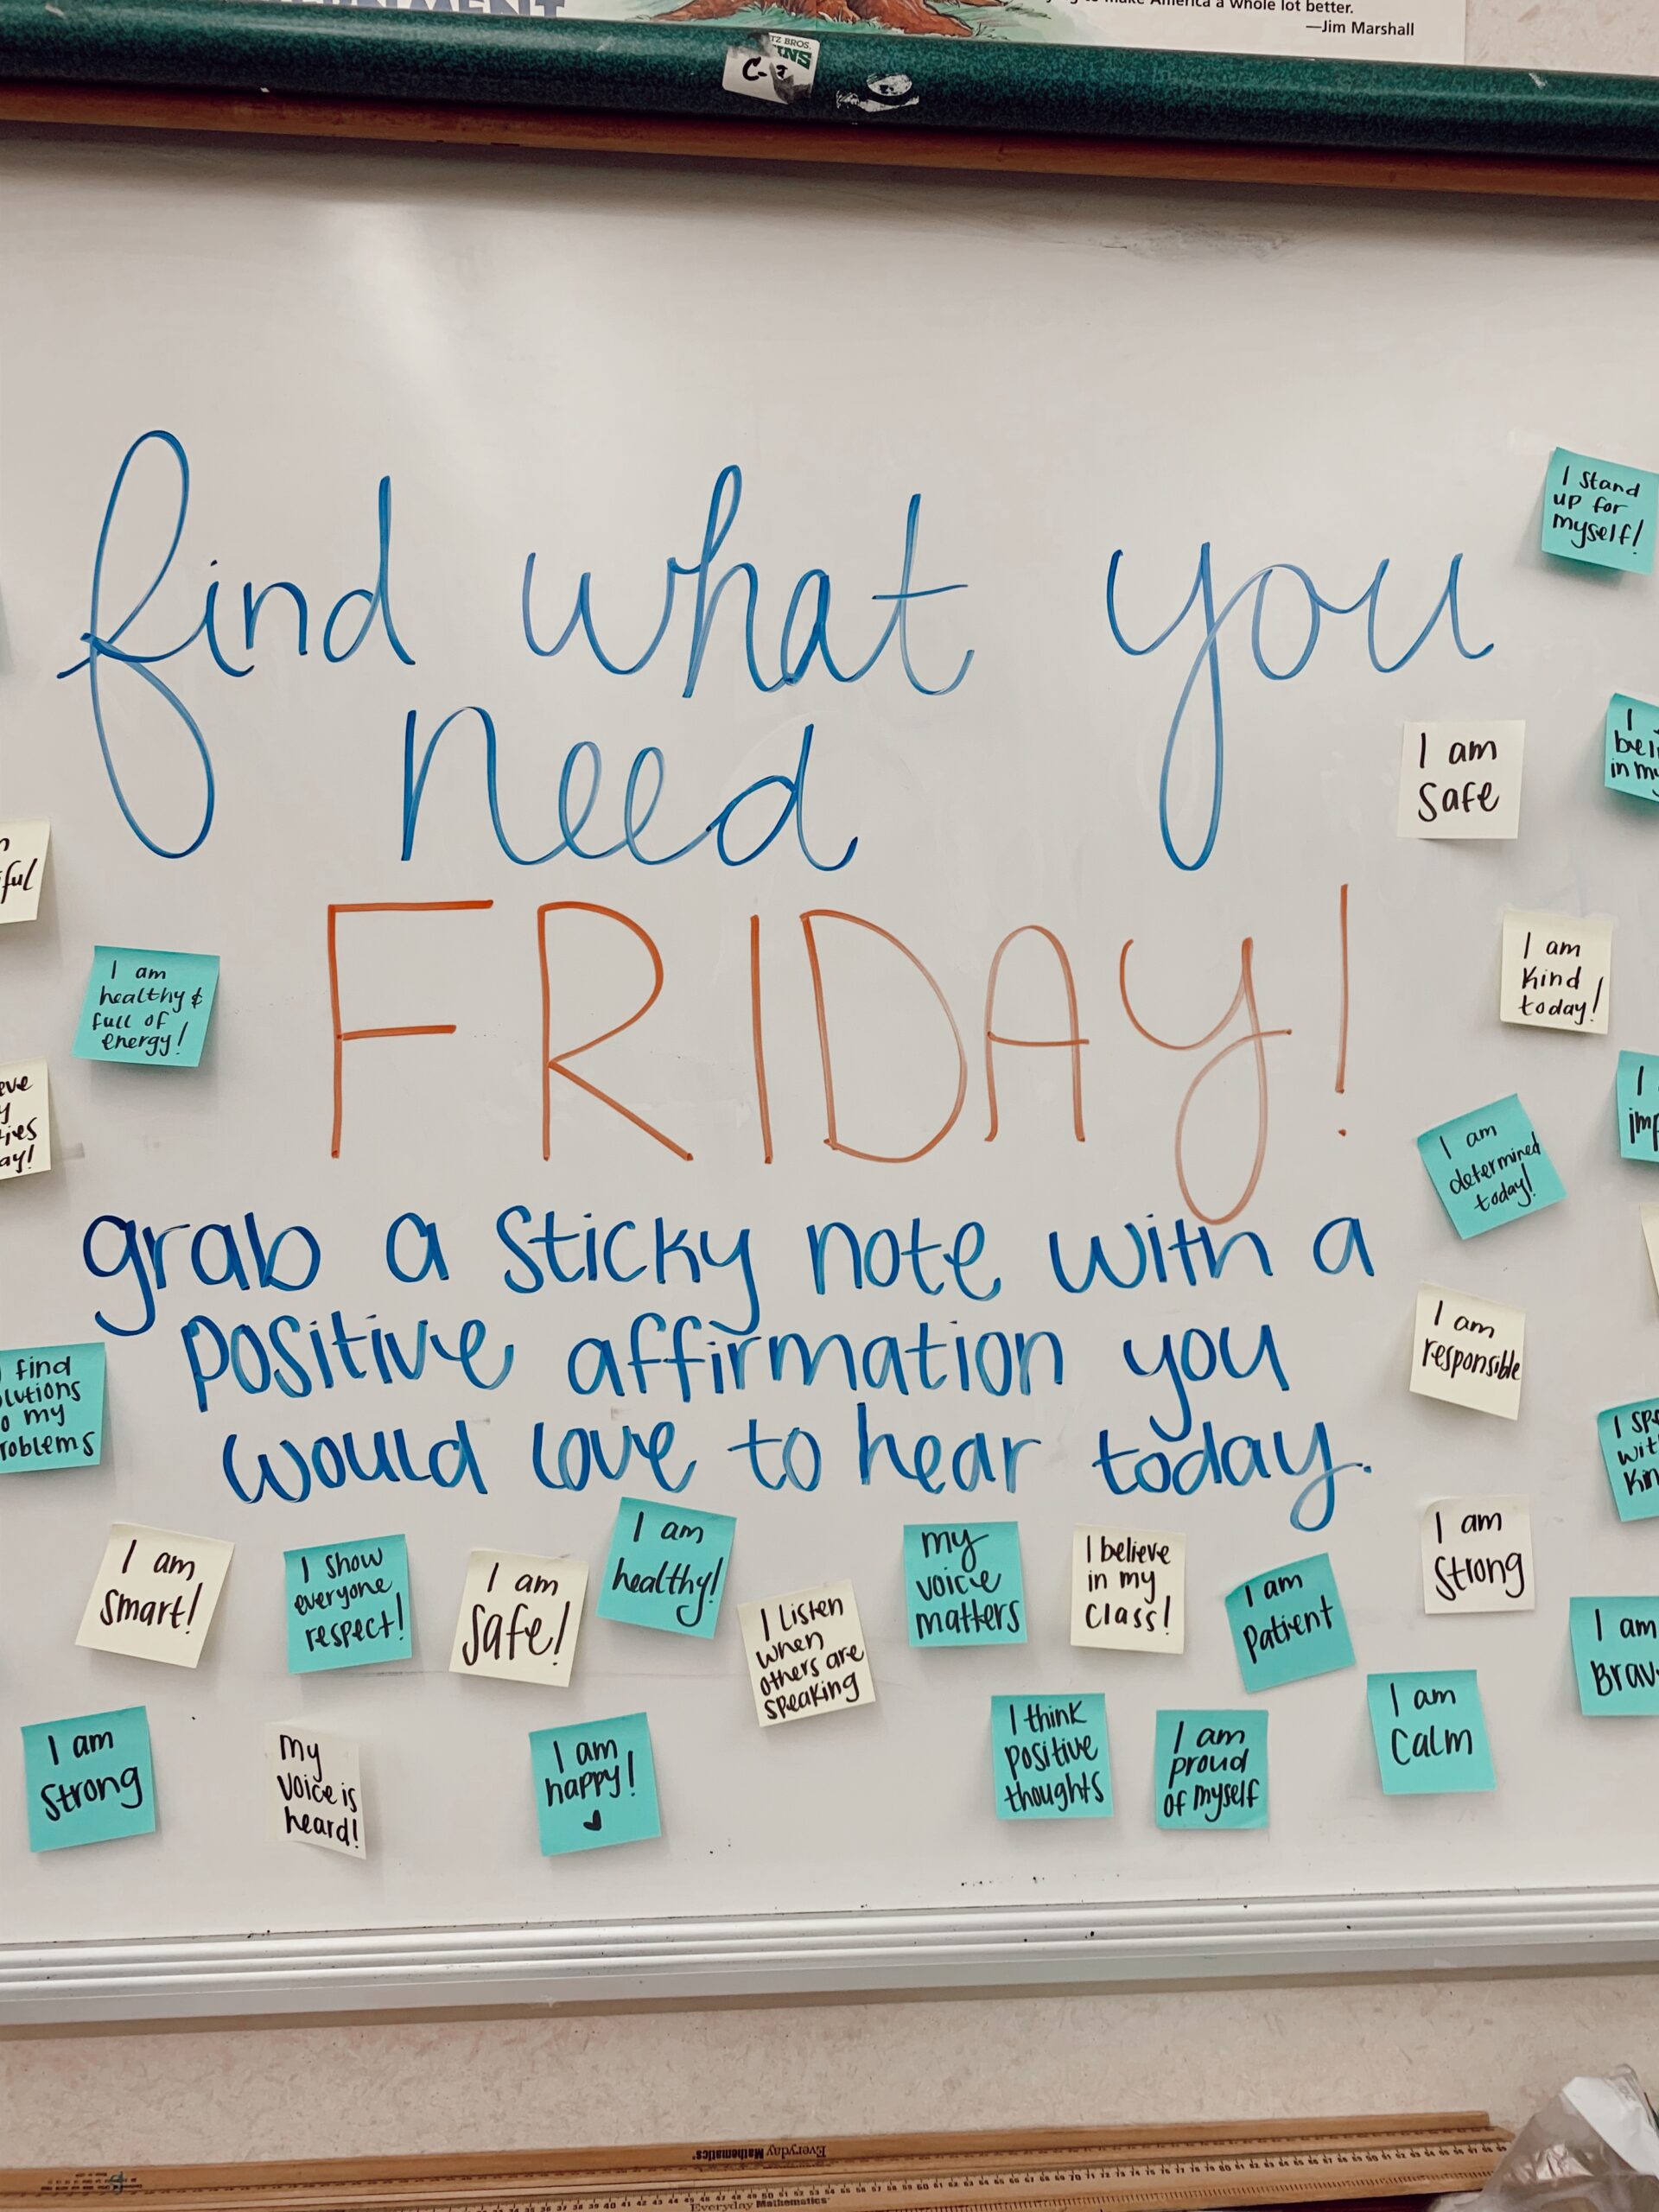 ERNMENT
America a whole lot better.
—Jim Marshall
TZ BROS.
C-
find what you
need
FRIDAY!
grab a sticky note with a
positive affirmation you
would love to hear today.
I stand
up for
myself!
I am
safe
I am
healthy &
full of
energy!
I am
kind
today!
I am
determined
today!
I am
responsible
find
my
I am
strong
I am
smart!
I show
everyone
respect!
I am
safe!
I am
healthy!
I listen
when
others are
speaking
my
voice
matters
I believe
in my
class!
I am
patient
I am
I am
strong
my
voice is
heard!
I am
happy!
I think
positive
thoughts
I am
proud
of myself
I am
calm
Everyday Mathematics®
Everyday Mathematics®